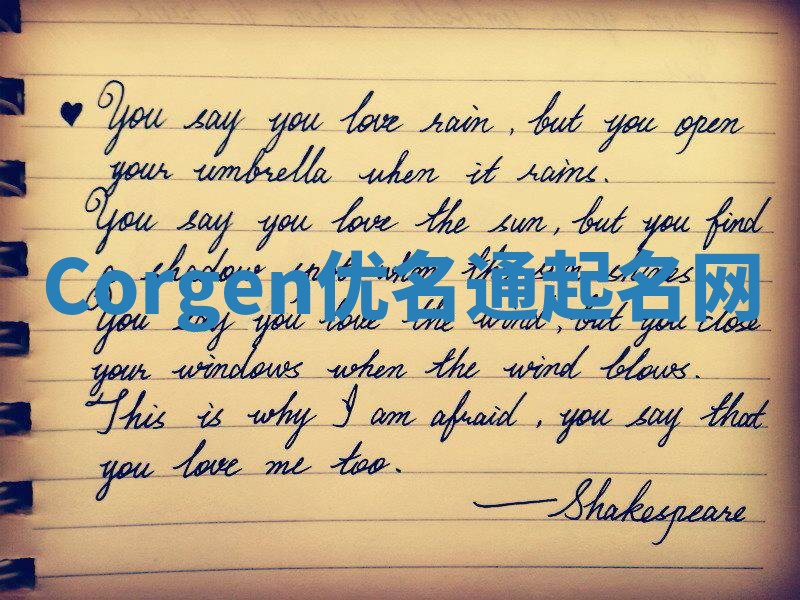 ♥ You say you love rain, but you open
your umbrella when it rains.
You say you love the sun, but you find
a shadow spot when the sun shines
Corgen优名通起名网
You say you love the wind, but you close
your windows when the wind blows.
This is why I am afraid, you say that
you love me too.
—Shakespeare